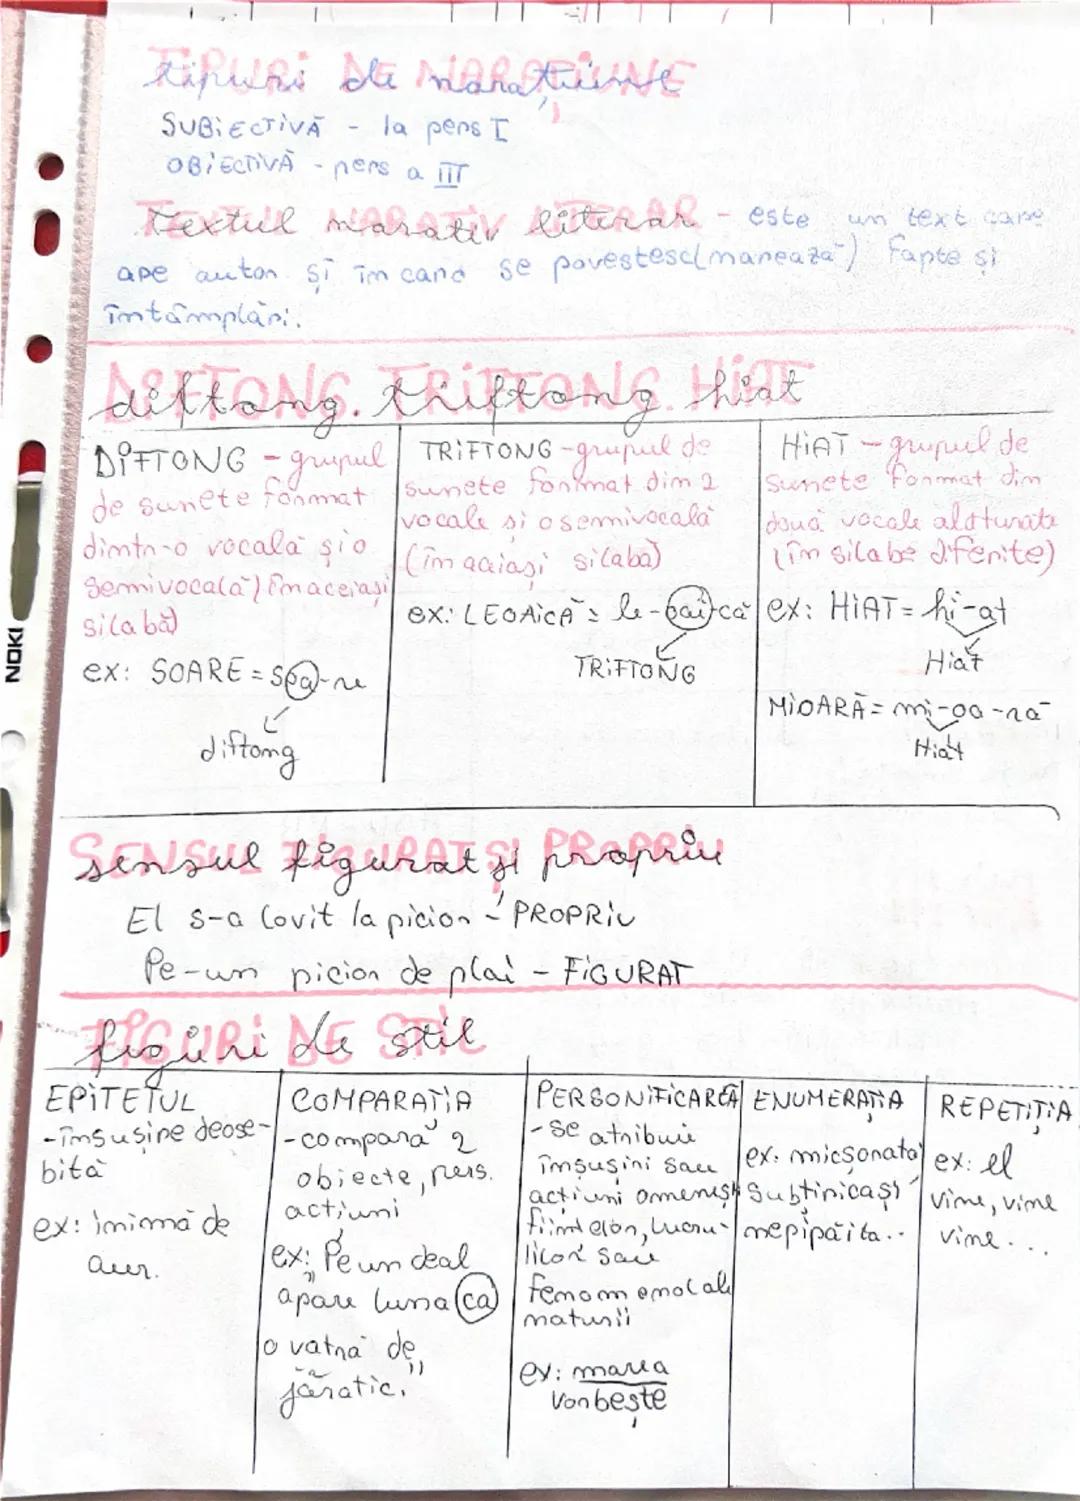 tipuri de narațiune
SUBIECTIVĂ - la pers I
OBIECTIVĂ - pers a III
Textul narativ literar - este un text care
are autor și în care se povestesc (narează) fapte și
întâmplări.
diftong. triftong hiat
DIFTONG - grupul
de sunete format
dintr-o vocală și o
semivocală) în aceiași
silabă)
ex: SOARE = soa-re
diftong
TRIFTONG - grupul de
sunete format din 2
vocale și o semivocală
(în aciași silabă)
ex: LEOAICĂ = le-oai-că
TRIFTONG
HIAT - grupul de
sunete format din
două vocale alăturate
(în silabe diferite)
ex: HIAT = hi-at
Hiat
MIOARĂ = mi-oa-ră
Hiat
sensul figurat și propriu
El s-a lovit la picior - PROPRIU
Pe-un picior de plai - FIGURAT
figuri de stil
EPITETUL
-însușire deose-
bită
ex: inimă de
aur.
COMPARAȚIA
-compară 2
obiecte, pers.
acțiuni
ex: Pe un deal
"apare luna ca
o vatră de
jăratic."
PERSONIFICAREA
-se atribuie
însușiri sau
acțiuni omenești
ființelor, lucru-
lilor sau
fenomenelor ale
naturii
ex: marea
vorbește
ENUMERAȚIA
ex. micșorata
subțirica și
nepipăita..
REPETIȚIA
ex: el
vine, vine
vine...
NOKI